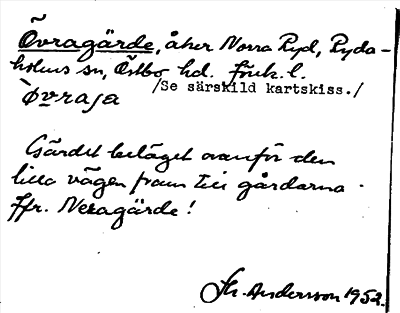 Övragärde, åker Norra Ryd, Ryda-
holms sn, Östbo hd. Jönk. l.
/Se särskild kartskiss./
Gärdet beläget ovanför den
lilla vägen fram till gårdarna.
Jfr. Neragärde!
Andersson 1952.